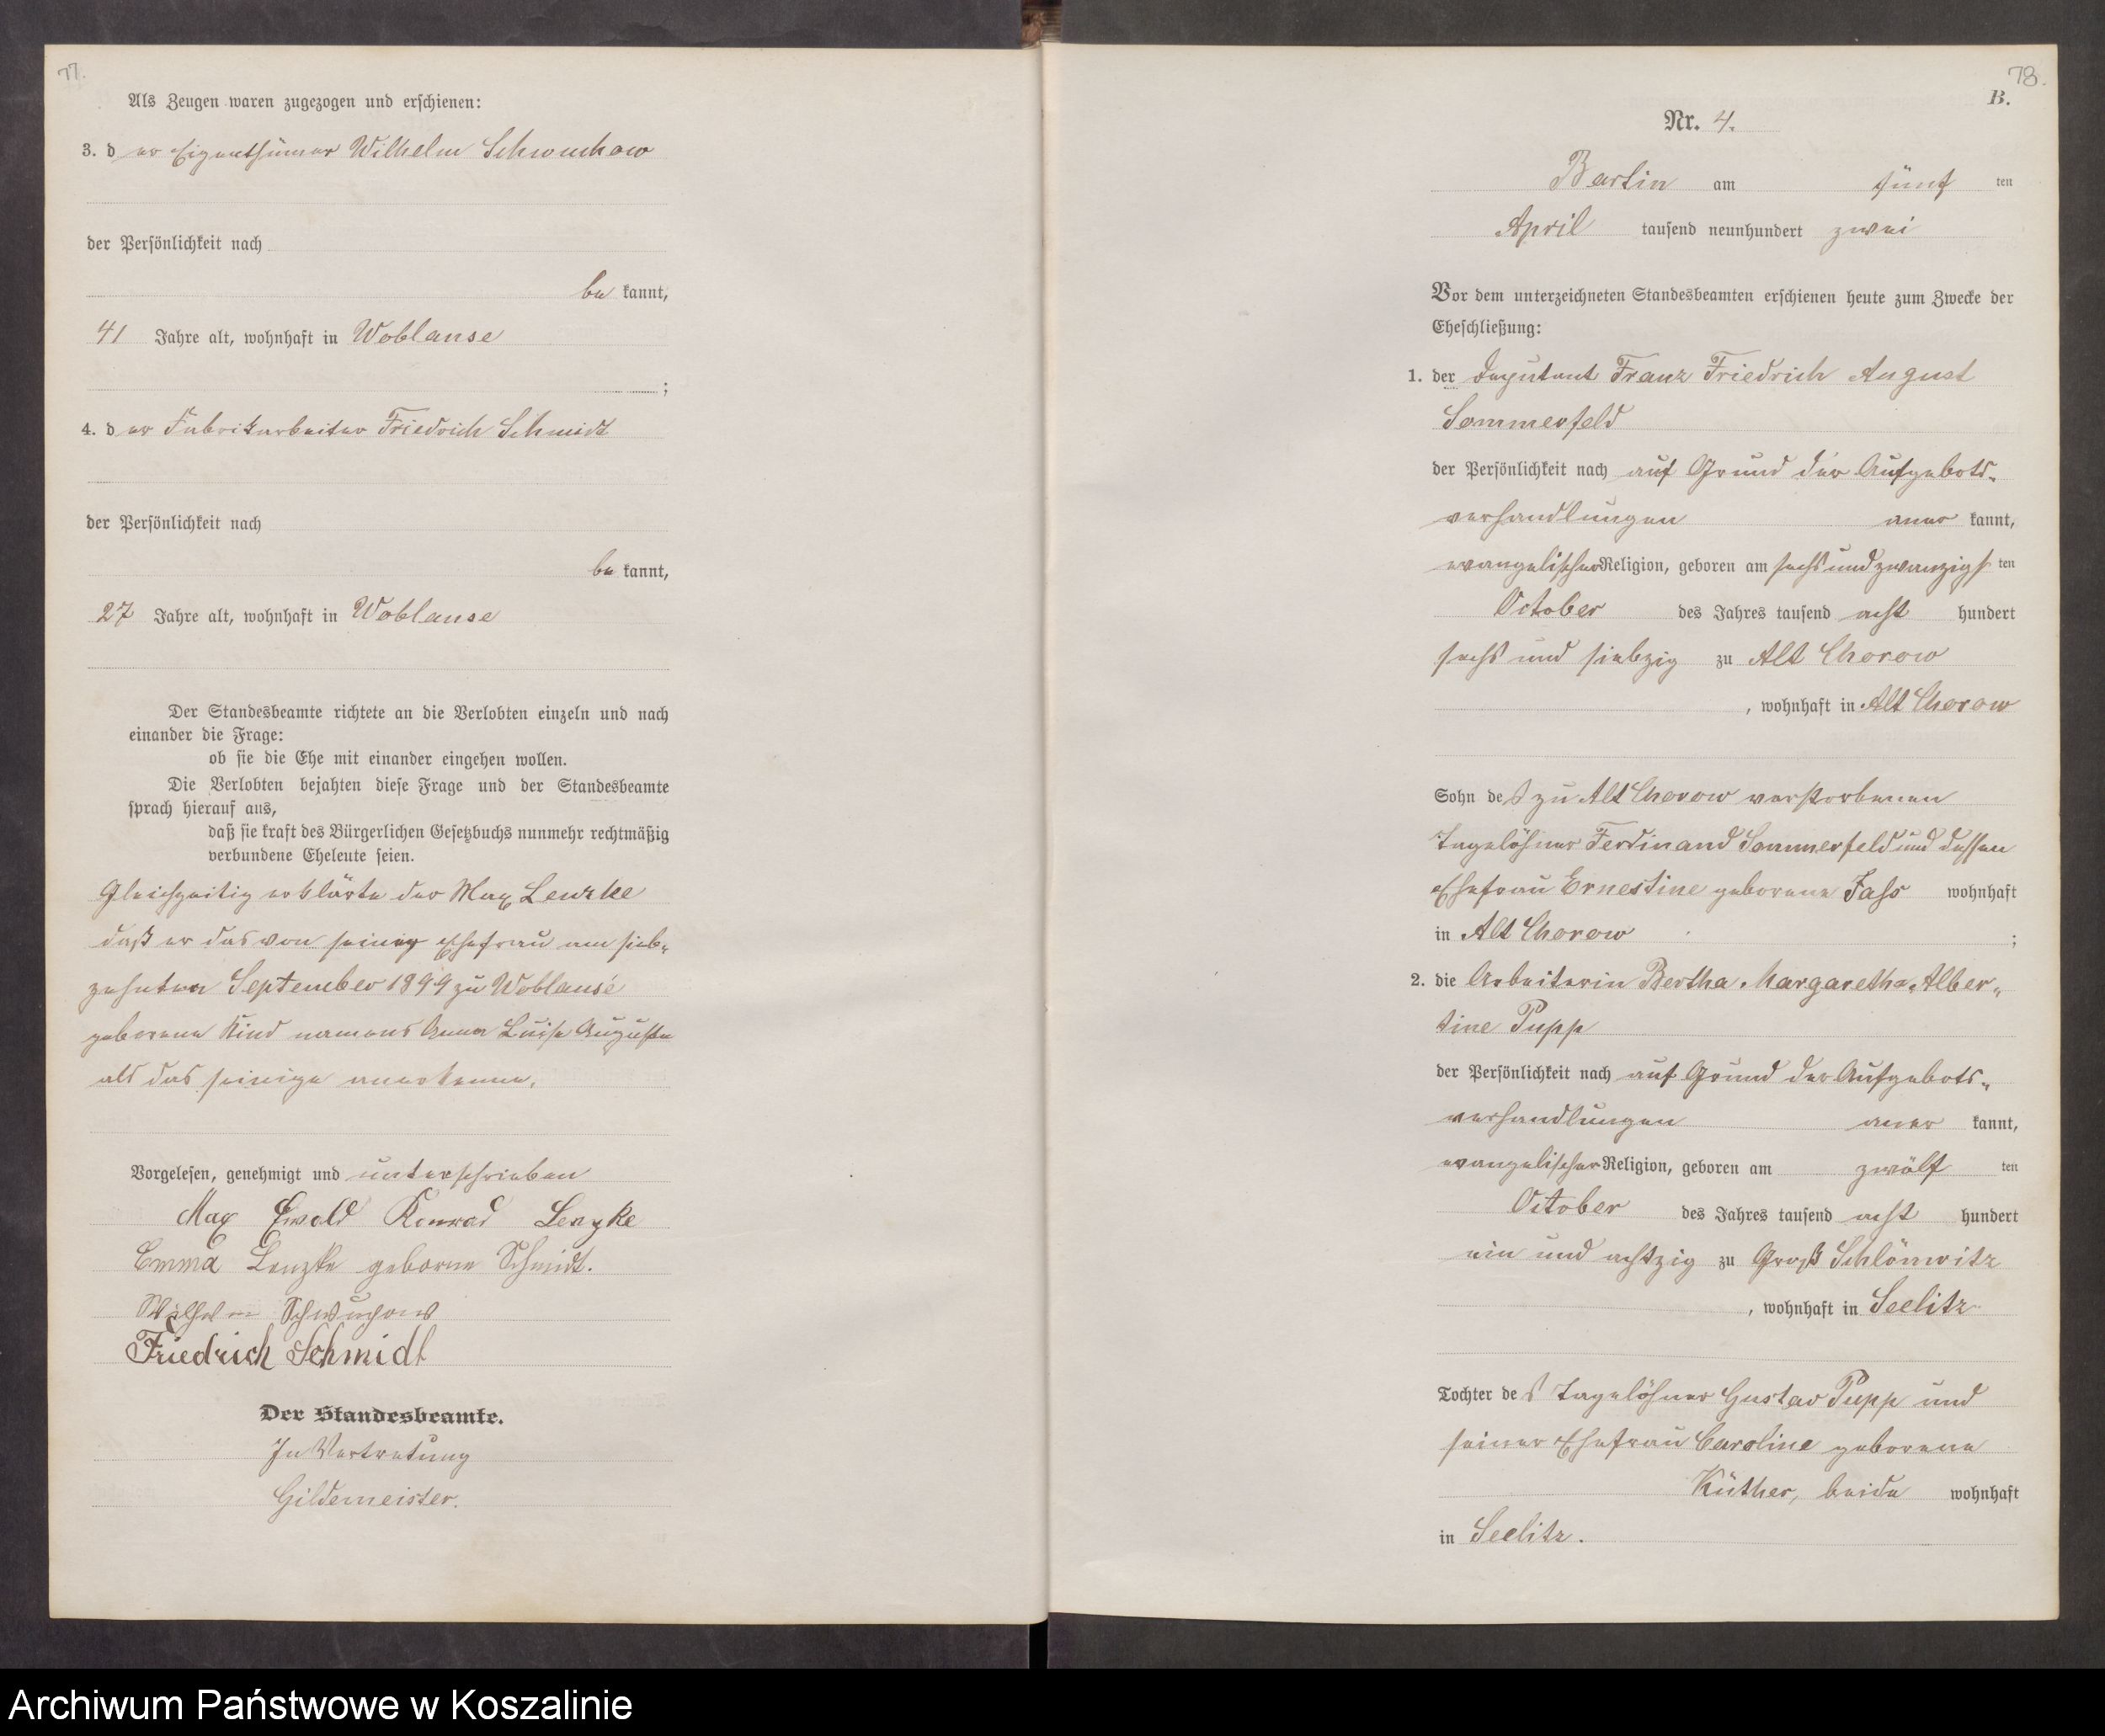 77.
Als Zeugen waren zugezogen und erschienen:
3. der Eigenthümer Wilhelm Schwuchow
der Persönlichkeit nach
be kannt,
41 Jahre alt, wohnhaft in Woblanse
;
4. der Fabrikarbeiter Friedrich Schmidt
der Persönlichkeit nach
be kannt,
27 Jahre alt, wohnhaft in Woblanse
Der Standesbeamte richtete an die Verlobten einzeln und nach
einander die Frage:
ob sie die Ehe mit einander eingehen wollen.
Die Verlobten bejahten diese Frage und der Standesbeamte
sprach hierauf aus,
daß sie kraft des Bürgerlichen Gesetzbuchs nunmehr rechtmäßig
verbundene Eheleute seien.
Gleichzeitig erklärte der Max Lenzke
daß er das von seiner Ehefrau am sieb-
zehnten September 1899 zu Woblanse
geborene Kind namens Anna Luise Auguste
als das seinige anerkenne.
Vorgelesen, genehmigt und unterschrieben
Max Ewald Konrad Lenzke
Emma Lenzke geborne Schmidt.
Wilhelm Schwuchow
Friedrich Schmidt
Der Standesbeamte.
In Vertretung
Gildemeister.
78.
B.
Nr. 4.
Bartin am fünf ten
April tausend neunhundert zwei
Vor dem unterzeichneten Standesbeamten erschienen heute zum Zwecke der
Eheschließung:
1. der Deputant Franz Friedrich August
Sommerfeld
der Persönlichkeit nach auf Grund der Aufgebots-
verhandlungen aner kannt,
evangelischer Religion, geboren am sechsundzwanzigs ten
October des Jahres tausend acht hundert
sechs und siebzig zu Alt Chorow
, wohnhaft in Alt Chorow
Sohn des zu Alt Chorow verstorbenen
Tagelöhner Ferdinand Sommerfeld und dessen
Ehefrau Ernestine geborene Jass wohnhaft
in Alt Chorow ;
2. die Arbeiterin Bertha Margaretha Alber-
tine Pupp
der Persönlichkeit nach auf Grund der Aufgebots-
verhandlungen aner kannt,
evangelischer Religion, geboren am zwölf ten
October des Jahres tausend acht hundert
ein und achtzig zu Groß Schlönwitz
, wohnhaft in Seelitz
Tochter des Tagelöhner Gustav Pupp und
seiner Ehefrau Caroline geborene
Küther, beide wohnhaft
in Seelitz.
Archiwum Państwowe w Koszalinie